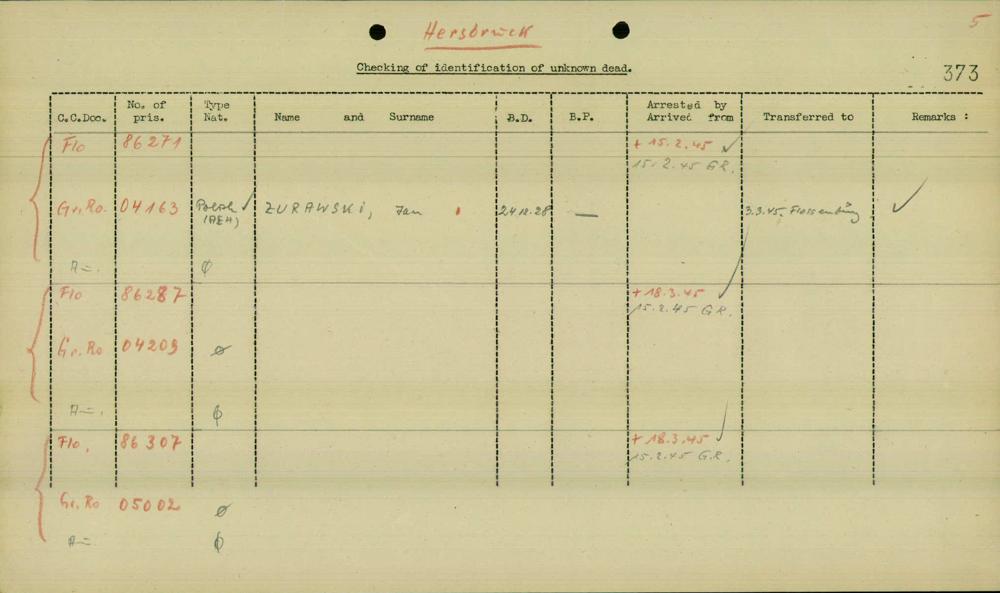 Hersbruck
5
Checking of identification of unknown dead.
373
C.C.Doc. No. of pris. Type Nat. Name and Surname B.D. B.P. Arrested by Arrived from Transferred to Remarks :
Flo 86271 + 15.2.45 ✓
15.2.45 GR.
Gr.Ro. 04163 Polsk ✓ ZURAWSKI, Jan — 3.3.45. Flossenbürg ✓
(AEH)
A=. ϕ
Flo 86287 + 18.3.45 ✓
15.2.45 GR.
Gr.Ro 04209 ø
A=. ϕ
Flo. 86307 + 18.3.45 ✓
15.2.45 GR.
Gr.Ro 05002 ø
A= ϕ